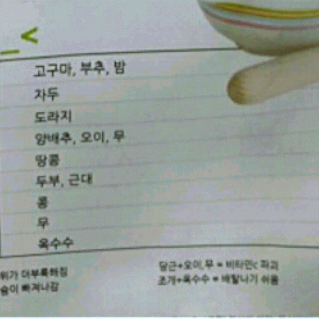 고구마, 부추, 밤
자두
도라지
양배추, 오이, 무
땅콩
두부, 근대
콩
무
옥수수
위가 더부룩해짐
슘이 빠져나감
당근+오이,무 = 비타민c 파괴
조개+옥수수 = 배탈나기 쉬움